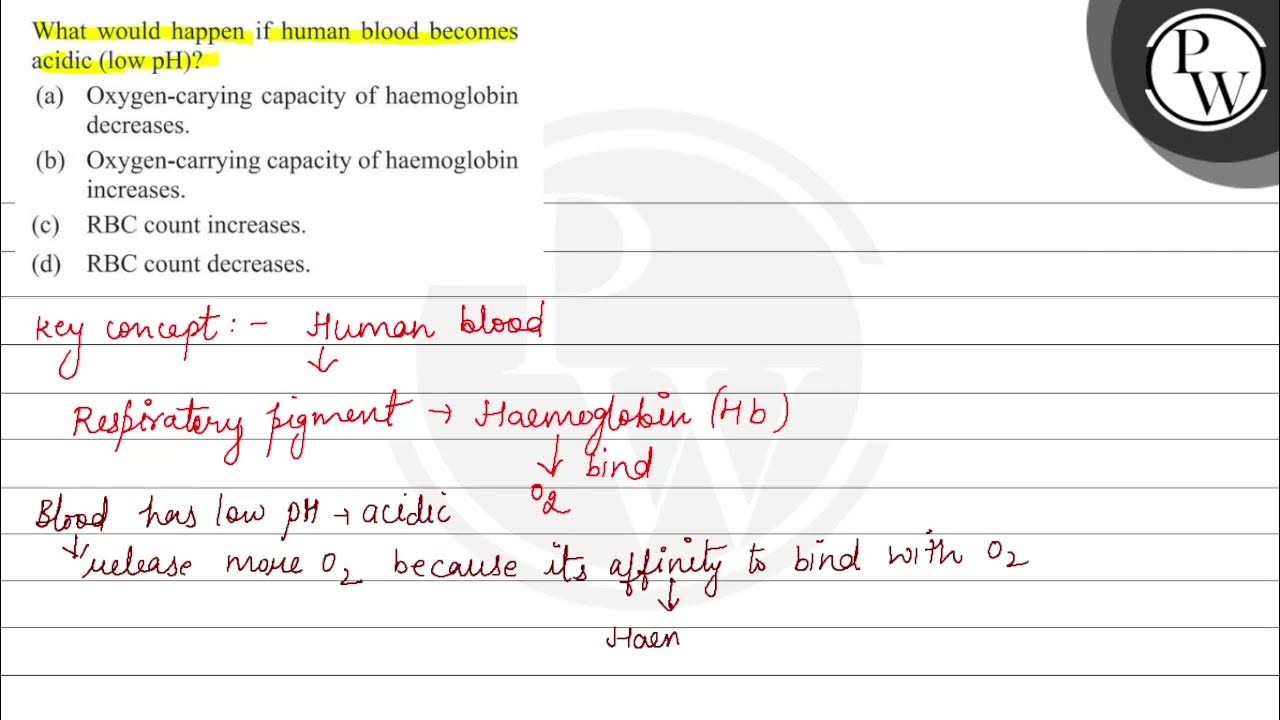 What would happen if human blood becomes
acidic (low pH)?
(a) Oxygen-carying capacity of haemoglobin
decreases.
(b) Oxygen-carrying capacity of haemoglobin
increases.
(c) RBC count increases.
(d) RBC count decreases.
PW
Key concept :- Human blood
↓
Respiratory pigment → Haemoglobin (Hb)
↓ bind
O2
Blood has low pH → acidic
↓ release more O2 because its affinity to bind with O2
↓
Haem
PW